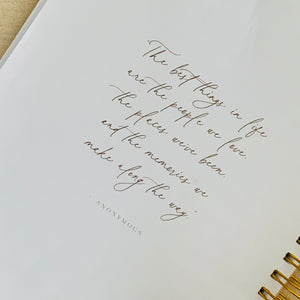 The best things in life
are the people we love,
the places we've been,
and the memories we
make along the way.
- ANONYMOUS